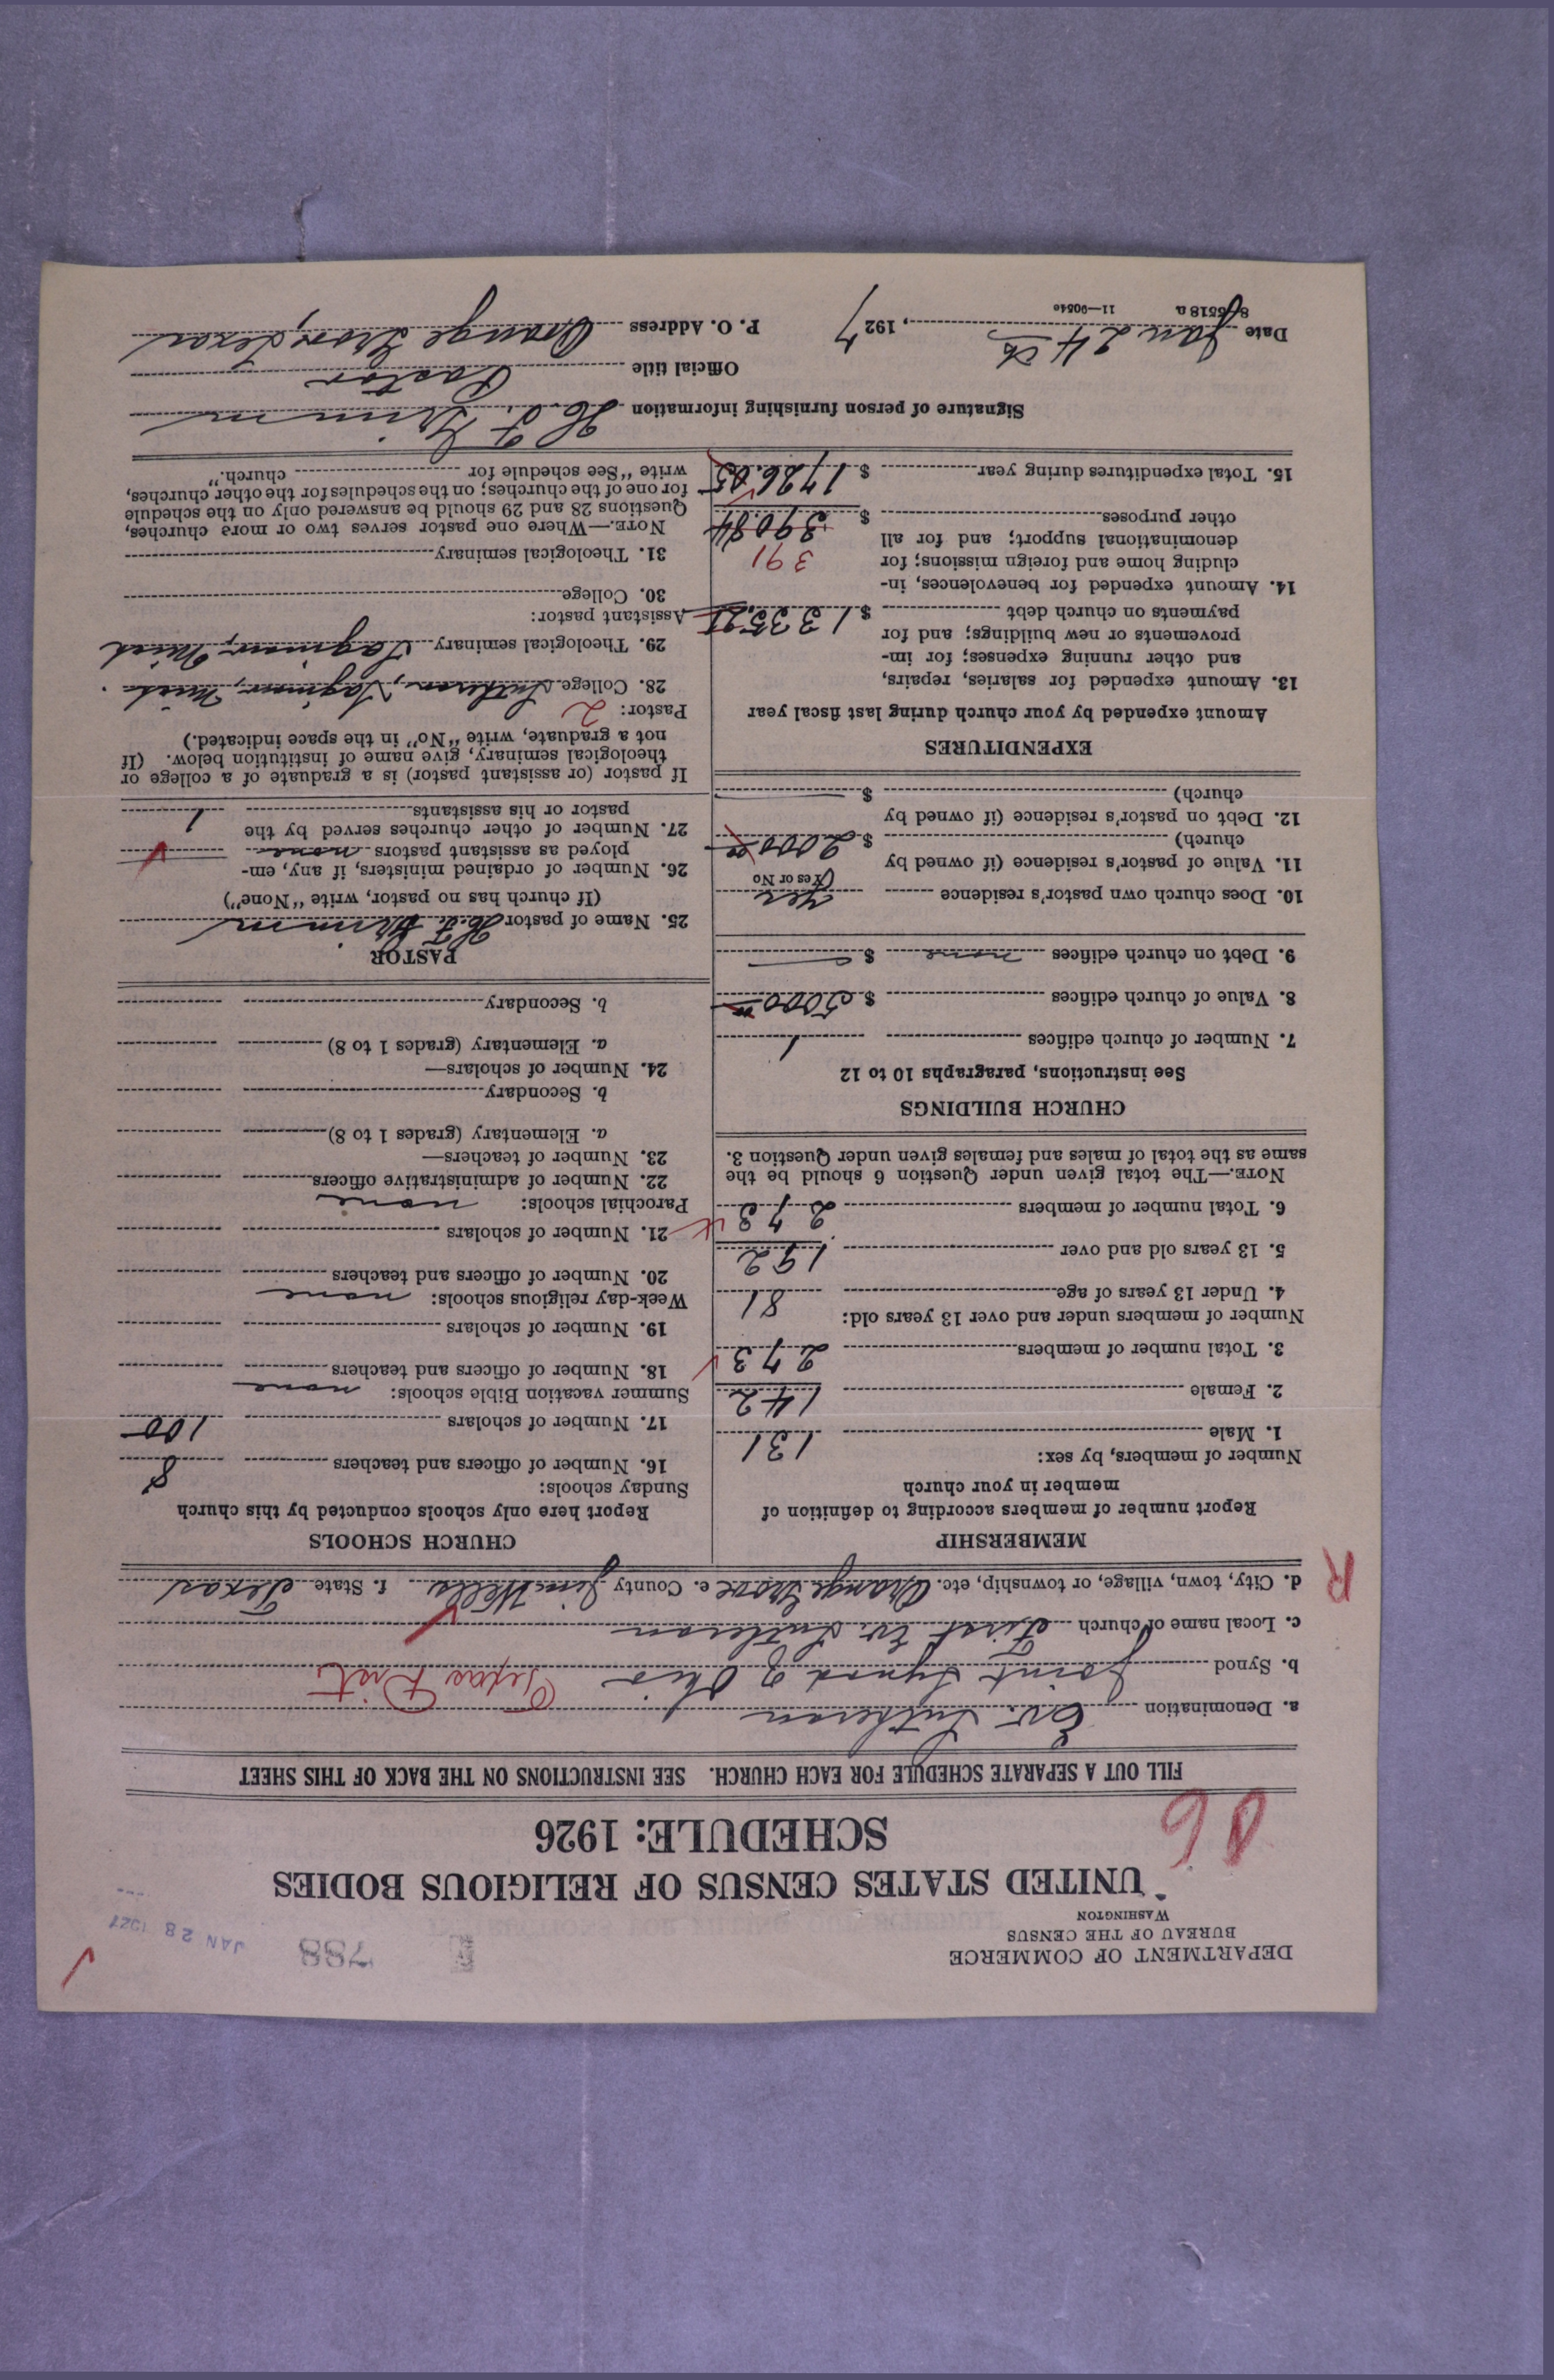 DEPARTMENT OF COMMERCE
BUREAU OF THE CENSUS
WASHINGTON
788
JAN 28 1927
UNITED STATES CENSUS OF RELIGIOUS BODIES
SCHEDULE: 1926
FILL OUT A SEPARATE SCHEDULE FOR EACH CHURCH. SEE INSTRUCTIONS ON THE BACK OF THIS SHEET
a. Denomination Ev. Lutheran
b. Synod Joint Synod of Ohio Texas Dist
c. Local name of church First Ev. Lutheran
d. City, town, village, or township, etc. Orange Grove e. County Jim Wells f. State Texas
R
MEMBERSHIP
Report number of members according to definition of
member in your church
Number of members, by sex:
1. Male 131
2. Female 142
3. Total number of members 273
Number of members under and over 13 years old:
4. Under 13 years of age 81
5. 13 years old and over 192
6. Total number of members 273
NOTE.—The total given under Question 6 should be the
same as the total of males and females given under Question 3.
CHURCH BUILDINGS
See instructions, paragraphs 10 to 12
7. Number of church edifices 1
8. Value of church edifices $ 5000
9. Debt on church edifices none $
10. Does church own pastor's residence yes
(Yes or No)
11. Value of pastor's residence (if owned by
church) $ 2000
12. Debt on pastor's residence (if owned by
church) $
EXPENDITURES
Amount expended by your church during last fiscal year
13. Amount expended for salaries, repairs,
and other running expenses; for im-
provements or new buildings; and for
payments on church debt $ 1335.21
14. Amount expended for benevolences, in-
cluding home and foreign missions; for 391
denominational support; and for all
other purposes $ 390.84
15. Total expenditures during year $ 1726.05
CHURCH SCHOOLS
Report here only schools conducted by this church
Sunday schools:
16. Number of officers and teachers 8
17. Number of scholars 100
Summer vacation Bible schools: none
18. Number of officers and teachers
19. Number of scholars
Week-day religious schools: none
20. Number of officers and teachers
21. Number of scholars
Parochial schools: none
22. Number of administrative officers
23. Number of teachers—
a. Elementary (grades 1 to 8)
b. Secondary
24. Number of scholars—
a. Elementary (grades 1 to 8)
b. Secondary
PASTOR
25. Name of pastor H. F. Grimm
(If church has no pastor, write "None")
26. Number of ordained ministers, if any, em-
ployed as assistant pastors none
27. Number of other churches served by the
pastor or his assistants 1
If pastor (or assistant pastor) is a graduate of a college or
theological seminary, give name of institution below. (If
not a graduate, write "No" in the space indicated.)
Pastor: 2
28. College Lutheran, Saginaw, Mich.
29. Theological seminary Saginaw, Mich
Assistant pastor:
30. College
31. Theological seminary
NOTE.—Where one pastor serves two or more churches,
Questions 28 and 29 should be answered only on the schedule
for one of the churches; on the schedules for the other churches,
write "See schedule for church."
Signature of person furnishing information H. F. Grimm
Official title Pastor
Date Jan 24th, 1927 P. O. Address Orange Grove, Texas
8-5518 a 11—9054e